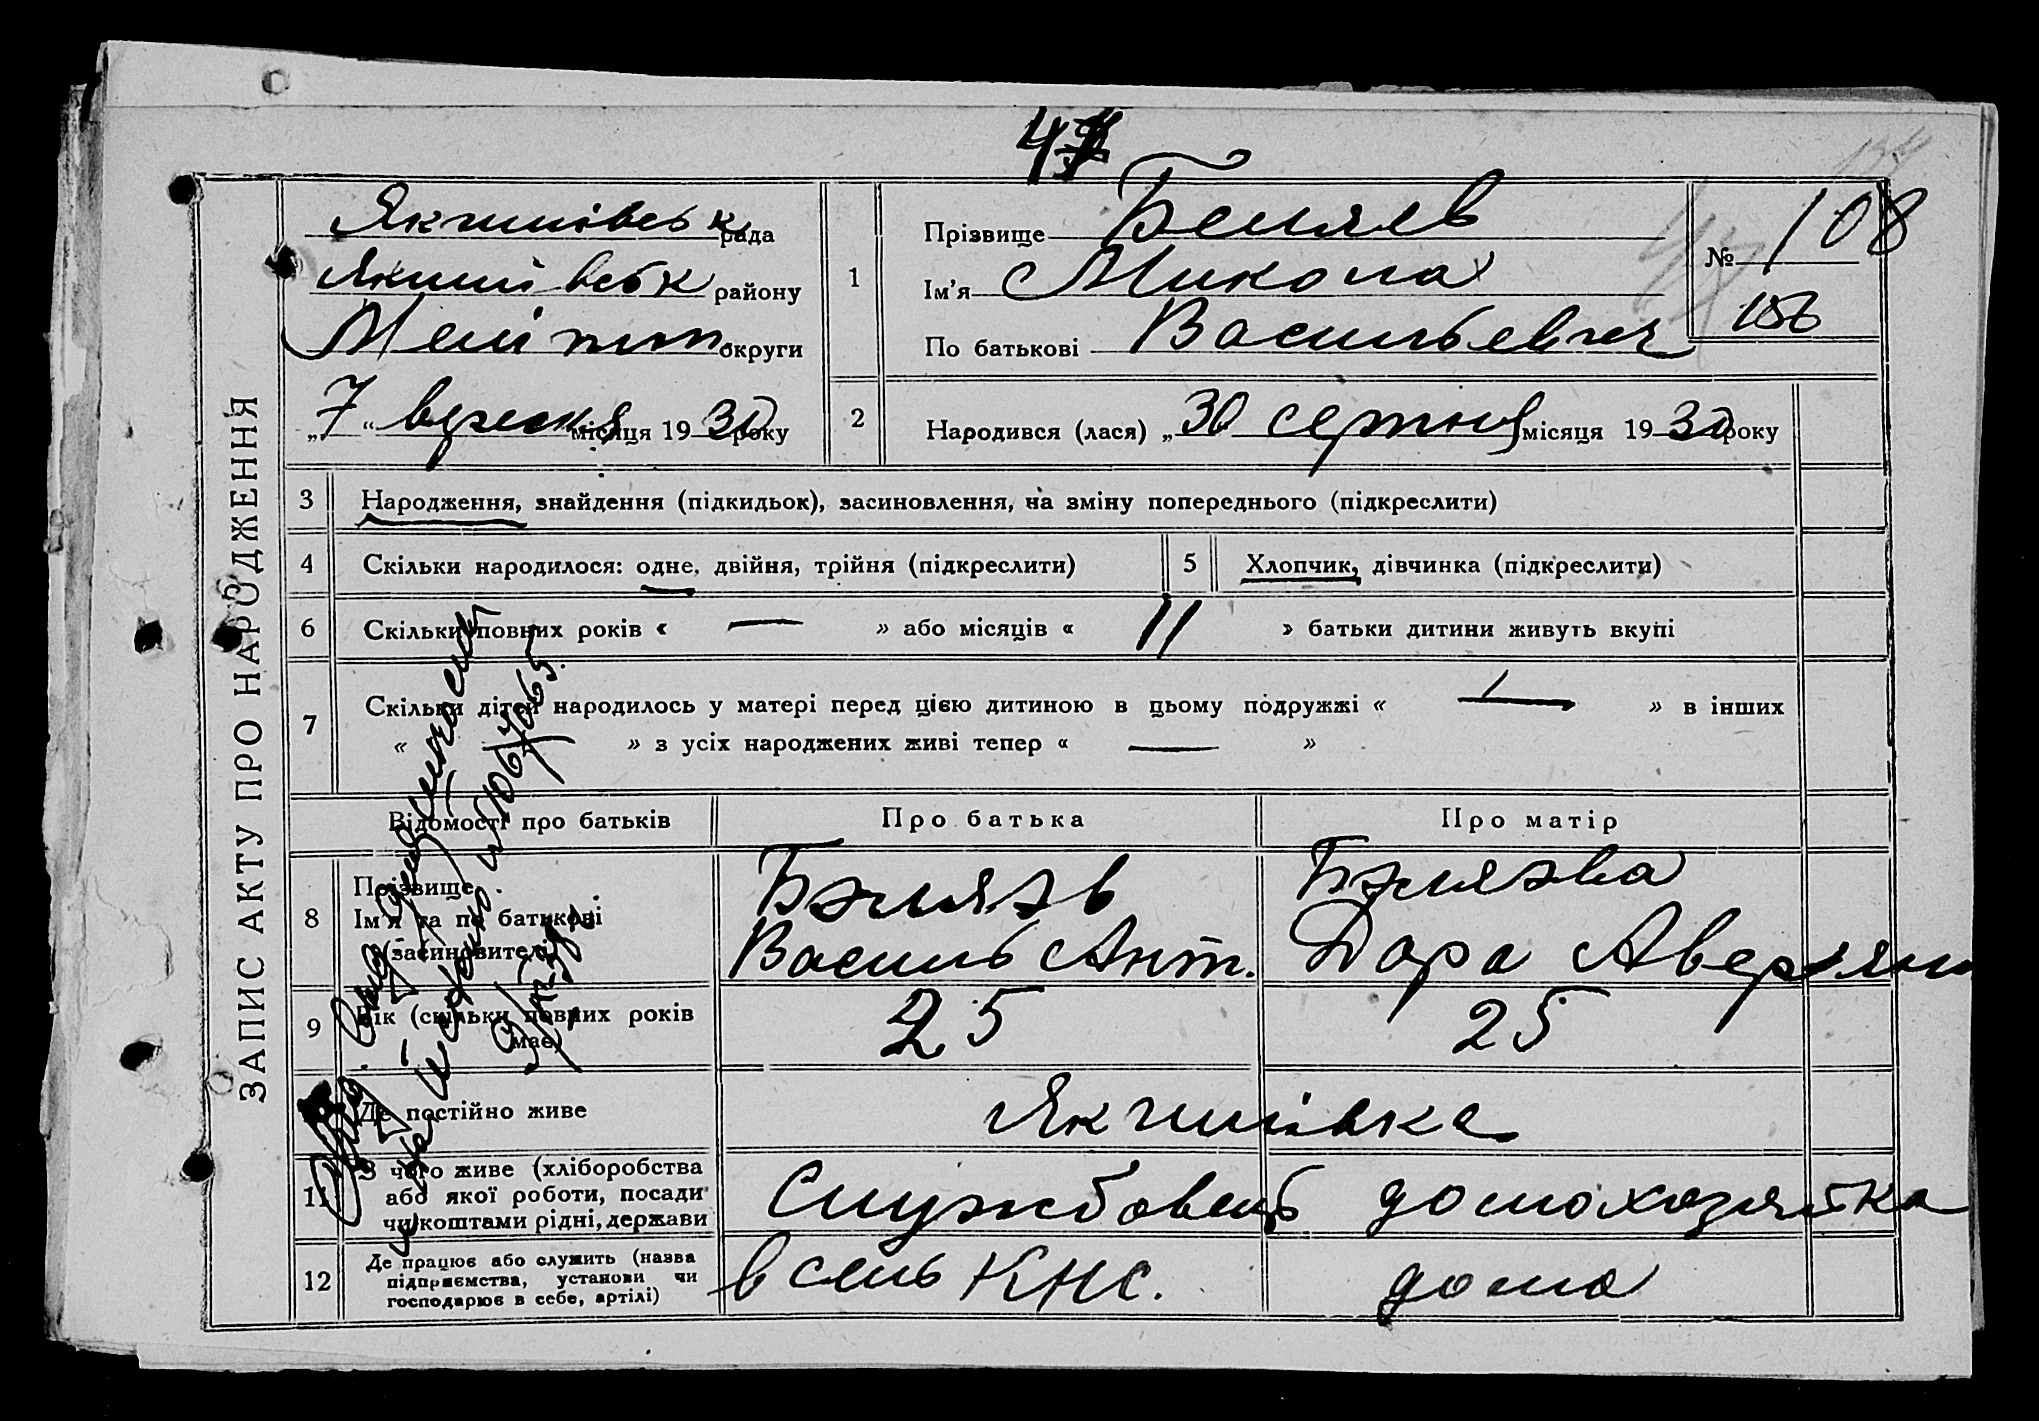 47
ЗАПИС АКТУ ПРО НАРОДЖЕННЯ
Якимівськ рада
Якимівськ району
Мелітоп. округи
„7“ вересня місяця 1930 року
1
Прізвище Беляев
Ім'я Микола
По батькові Васильевич
№ 108
156
2
Народився (лася) „30 серпня місяця 1930 року
3 Народження, знайдення (підкидьок), засиновлення, на зміну попереднього (підкреслити)
4 Скільки народилося: одне, двійня, трійня (підкреслити)
5 Хлопчик, дівчинка (підкреслити)
6 Скільки повних років « — » або місяців « 11 » батьки дитини живуть вкупі
7 Скільки дітей народилось у матері перед цією дитиною в цьому подружжі « — » в інших
« — » з усіх народжених живі тепер « — »
Відомості про батьків Про батька Про матір
8 Прізвище
Ім'я та по батькові
(засиновителі)
Бэляэв
Василь Ант.
Бэляэва
Дара Аверян
9 Вік (скільки повних років має)
25 25
Де постійно живе Якимівка
11 З чого живе (хліборобства
або якої роботи, посади
чи коштами рідні, держави
Службовець домохазяйка
12 Де працює або служить (назва
підприємства, установи чи
господарює в себе, артілі)
в сель КНС. дома